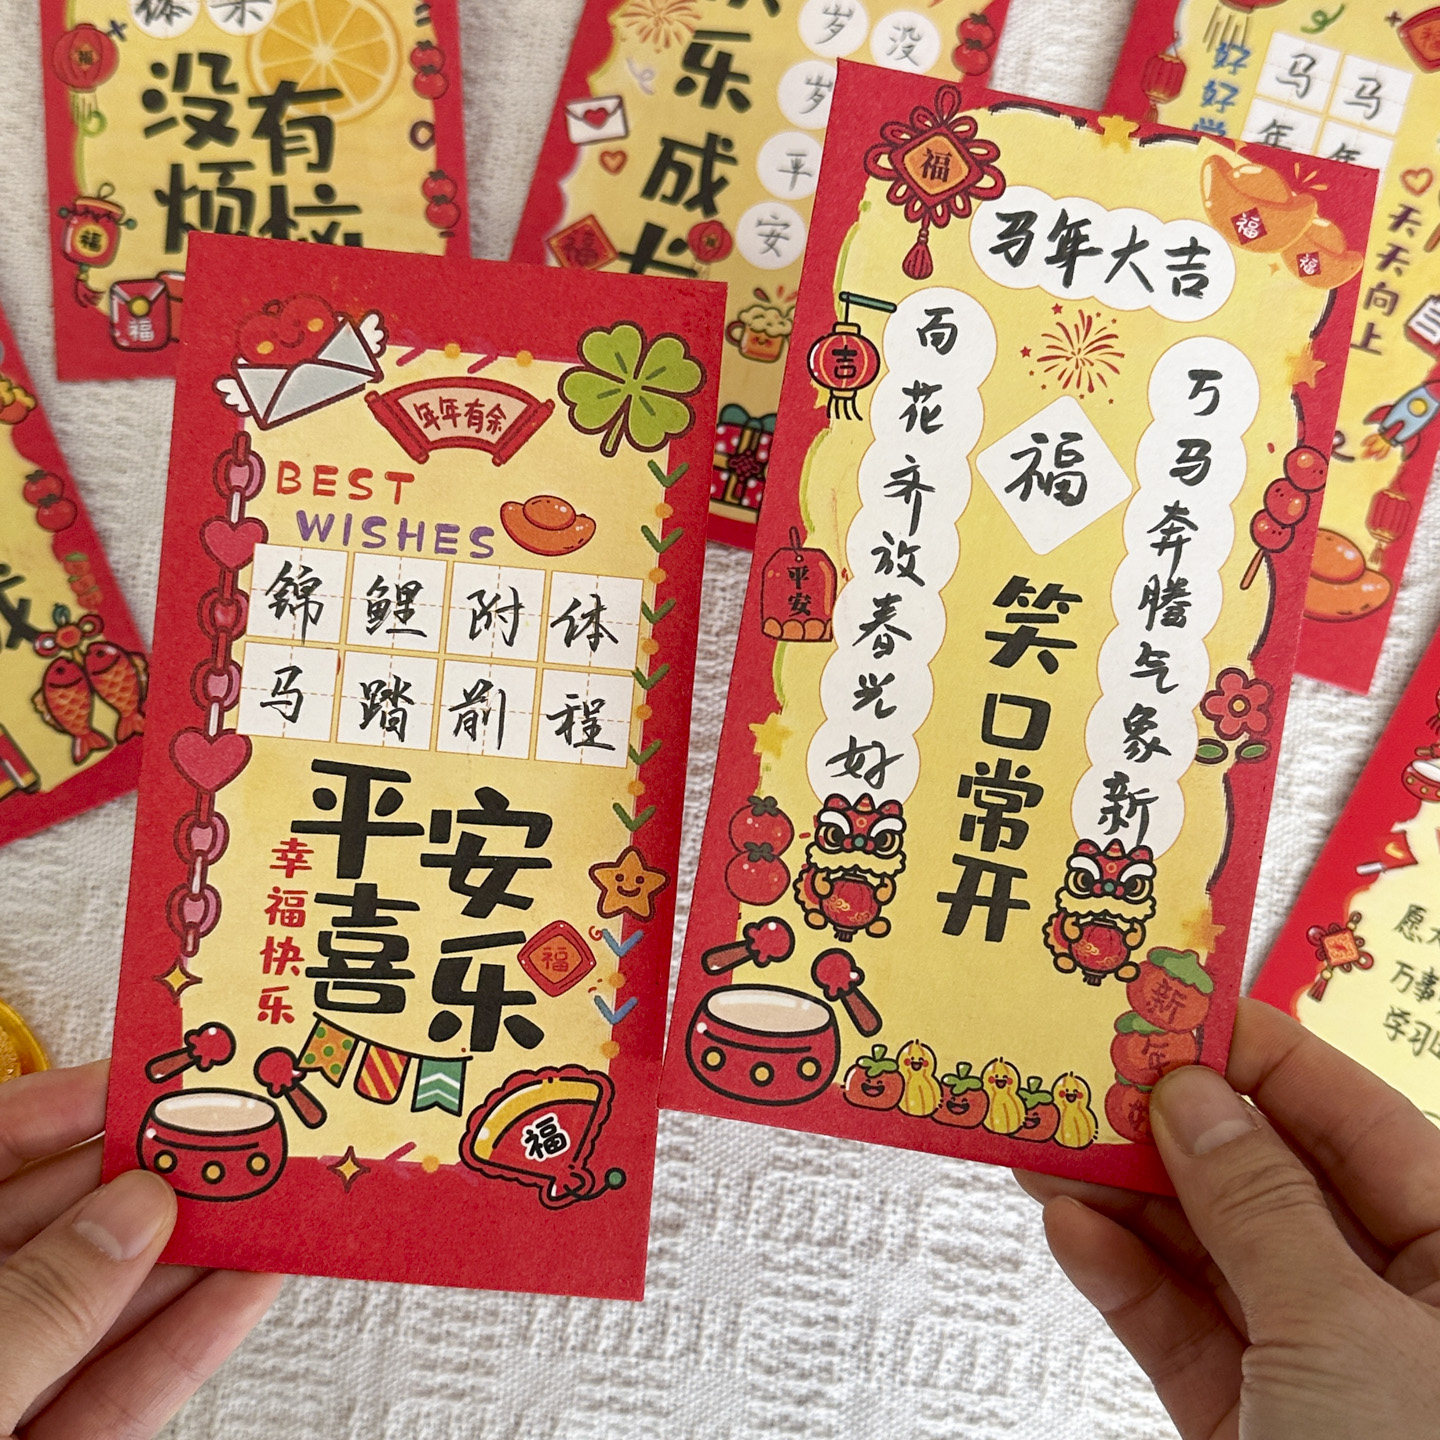 没有
烦恼
福
福
福
乐
成
岁
岁
平
安
没
好好学
马马
年年
天天向上
年年有余
BEST
WISHES
锦鲤附体
马踏前程
平安
喜乐
幸福快乐
福
福
福
马年大吉
福
福
吉
百花齐放春光好
万马奔腾气象新
福
笑口常开
平安
新
年
愿
万事
学习